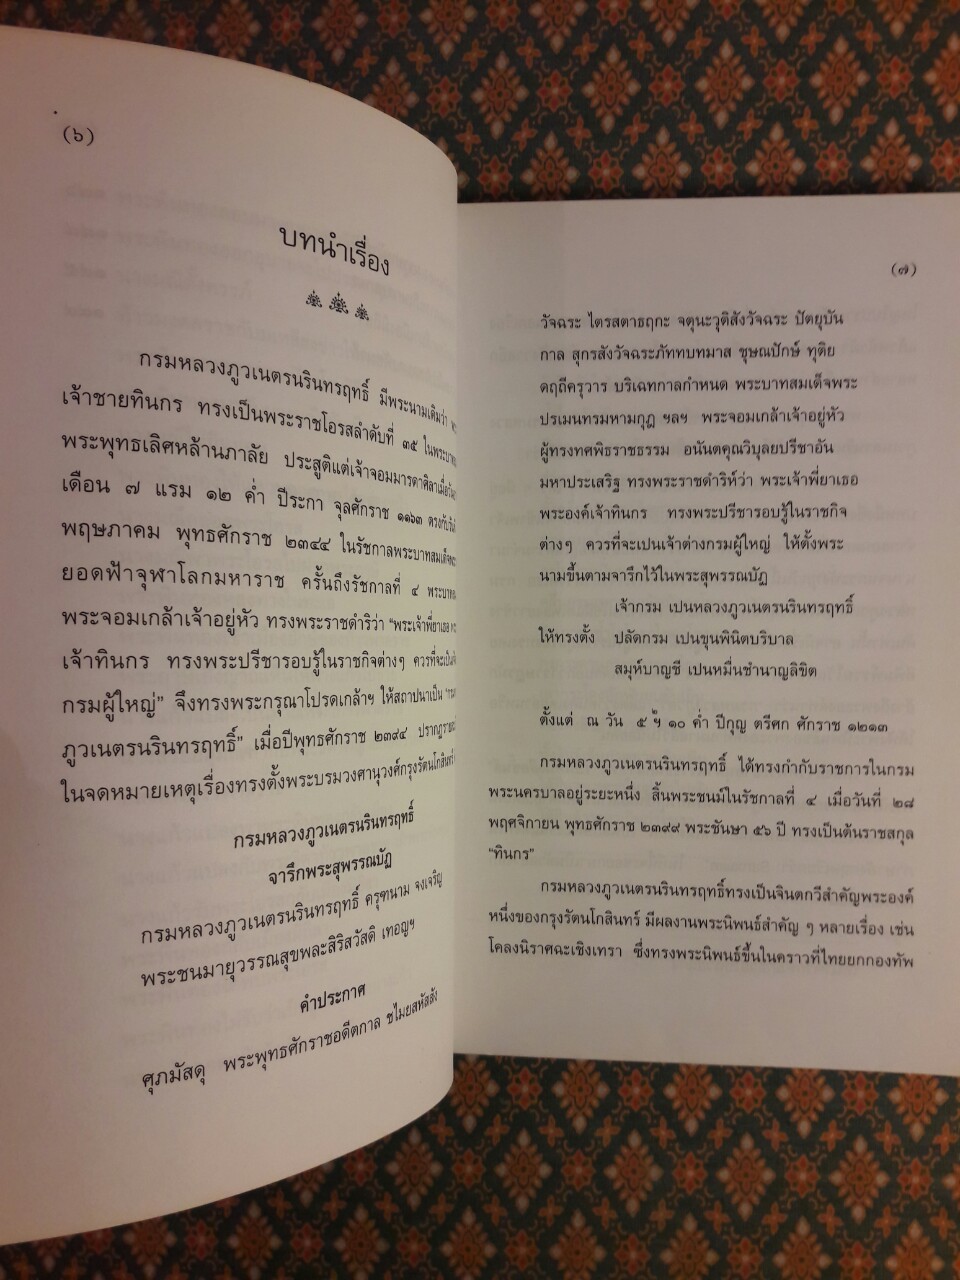 (๖)
บทนำเรื่อง
กรมหลวงภูวเนตรนรินทรฤทธิ์ มีพระนามเดิมว่า
เจ้าชายทินกร ทรงเป็นพระราชโอรสลำดับที่ ๓๕ ในพระบาท
พระพุทธเลิศหล้านภาลัย ประสูติแต่เจ้าจอมมารดาศิลาเมื่อวัน
เดือน ๗ แรม ๑๒ ค่ำ ปีระกา จุลศักราช ๑๑๖๓ ตรงกับวันที่
พฤษภาคม พุทธศักราช ๒๓๔๔ ในรัชกาลพระบาทสมเด็จ
ยอดฟ้าจุฬาโลกมหาราช ครั้นถึงรัชกาลที่ ๔ พระบาท
พระจอมเกล้าเจ้าอยู่หัว ทรงพระราชดำริว่า “พระเจ้าพี่ยาเธอ
เจ้าทินกร ทรงพระปรีชารอบรู้ในราชกิจต่างๆ ควรที่จะเป็น
กรมผู้ใหญ่” จึงทรงพระกรุณาโปรดเกล้าฯ ให้สถาปนาเป็น “กรม
ภูวเนตรนรินทรฤทธิ์” เมื่อปีพุทธศักราช ๒๓๙๔ ปรากฏราย
ในจดหมายเหตุเรื่องทรงตั้งพระบรมวงศานุวงศ์กรุงรัตนโกสินทร์
กรมหลวงภูวเนตรนรินทรฤทธิ์
จารึกพระสุพรรณบัฏ
กรมหลวงภูวเนตรนรินทรฤทธิ์ ครุฑนาม จงเจริญ
พระชนมายุวรรณสุขพละสิริสวัสดิ เทอญฯ
คำประกาศ
ศุภมัสดุ พระพุทธศักราชอดีตกาล ชไมยสหัสสัง
(๗)
วัจฉระ ไตรสตาธฤกะ จตุนะวุติสังวัจฉระ ปัตยุบัน
กาล สุกรสังวัจฉระภัททบทมาส ชุษณปักษ์ ทุติย
ดฤถีครุวาร บริเฉทกาลกำหนด พระบาทสมเด็จพระ
ปรเมนทรมหามกุฎ ฯลฯ พระจอมเกล้าเจ้าอยู่หัว
ผู้ทรงทศพิธราชธรรม อนันตคุณวิบุลยปรีชาอัน
มหาประเสริฐ ทรงพระราชดำริห์ว่า พระเจ้าพี่ยาเธอ
พระองค์เจ้าทินกร ทรงพระปรีชารอบรู้ในราชกิจ
ต่างๆ ควรที่จะเปนเจ้าต่างกรมผู้ใหญ่ ให้ตั้งพระ
นามขึ้นตามจารึกไว้ในพระสุพรรณบัฏ
เจ้ากรม เปนหลวงภูวเนตรนรินทรฤทธิ์
ให้ทรงตั้ง ปลัดกรม เปนขุนพินิตบริบาล
สมุห์บาญชี เปนหมื่นชำนาญลิขิต
ตั้งแต่ ณ วัน ๕ ฯ ๑๐ ค่ำ ปีกุญ ตรีศก ศักราช ๑๒๑๓
กรมหลวงภูวเนตรนรินทรฤทธิ์ ได้ทรงกำกับราชการในกรม
พระนครบาลอยู่ระยะหนึ่ง สิ้นพระชนม์ในรัชกาลที่ ๔ เมื่อวันที่ ๒๘
พฤศจิกายน พุทธศักราช ๒๓๙๙ พระชันษา ๕๖ ปี ทรงเป็นต้นราชสกุล
“ทินกร”
กรมหลวงภูวเนตรนรินทรฤทธิ์ทรงเป็นจินตกวีสำคัญพระองค์
หนึ่งของกรุงรัตนโกสินทร์ มีผลงานพระนิพนธ์สำคัญ ๆ หลายเรื่อง เช่น
โคลงนิราศฉะเชิงเทรา ซึ่งทรงพระนิพนธ์ขึ้นในคราวที่ไทยยกกองทัพ